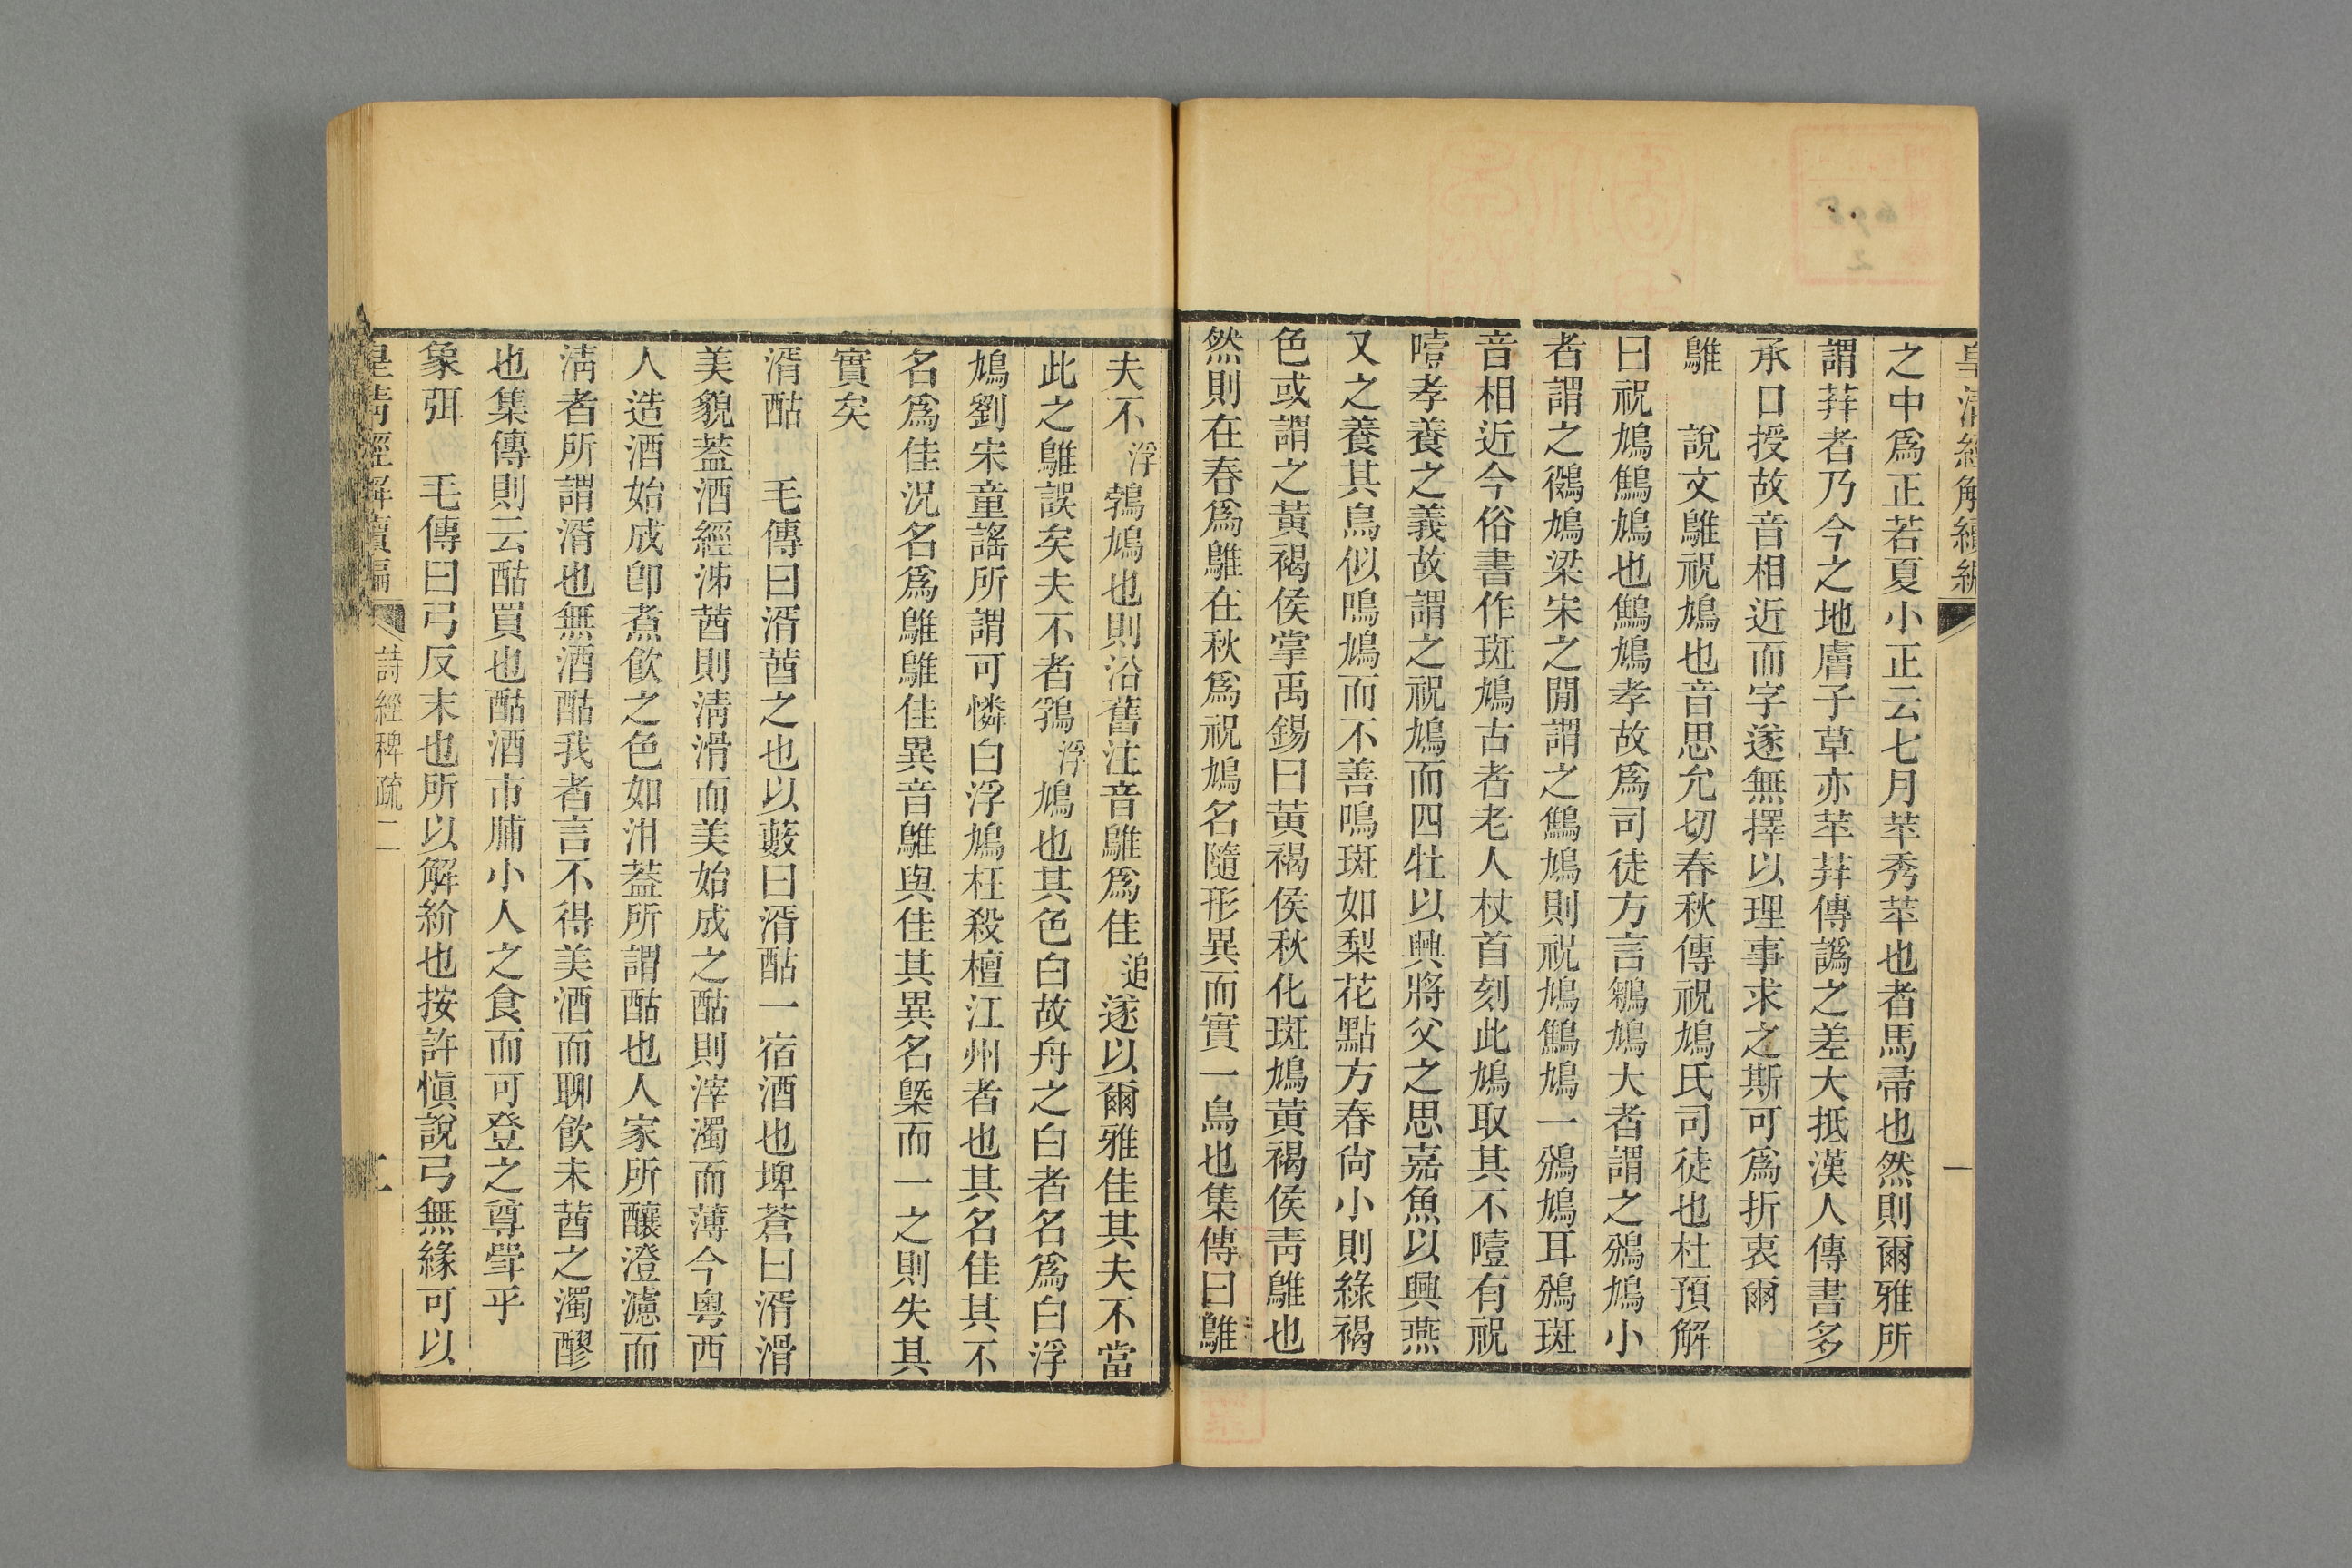 皇清經解續編
一
之中爲正若夏小正云七月苹秀苹也者馬帚也然則爾雅所
謂荓者乃今之地膚子草亦苹荓傳譌之差大抵漢人傳書多
承口授故音相近而字遂無擇以理事求之斯可爲折衷爾
鵻 說文鵻祝鳩也音思允切春秋傳祝鳩氏司徒也杜預解
曰祝鳩鷦鳩也鷦鳩孝故爲司徒方言鶵鳩大者謂之鳻鳩小
者謂之鵕鳩梁宋之閒謂之鷦鳩則祝鳩鷦鳩一鳻鳩耳鳻斑
音相近今俗書作斑鳩古者老人杖首刻此鳩取其不噎有祝
噎孝養之義故謂之祝鳩而四牡以興將父之思嘉魚以興燕
又之養其鳥似鳴鳩而不善鳴斑如梨花點方春尙小則綠褐
色或謂之黃褐侯掌禹錫曰黃褐侯秋化斑鳩黃褐侯靑鵻也
然則在春爲鵻在秋爲祝鳩名隨形異而實一鳥也集傳曰鵻
夫不浮鵓鳩也則沿舊注音鵻爲隹追遂以爾雅隹其夫不當
此之鵻誤矣夫不者鶏浮鳩也其色白故舟之白者名爲白浮
鳩劉宋童謠所謂可憐白浮鳩枉殺檀江州者也其名隹其不
名爲隹況名爲鵻鵻隹異音鵻與隹其異名槩而一之則失其
實矣
湑酤 毛傳曰湑莤之也以藪曰湑酤一宿酒也埤蒼曰湑滑
美貌葢酒經泲莤則淸滑而美始成之酤則滓濁而薄今粵西
人造酒始成卽煮飮之色如泔葢所謂酤也人家所釀澄濾而
淸者所謂湑也無酒酤我者言不得美酒而聊飮未莤之濁醪
也集傳則云酤買也酤酒市脯小人之食而可登之尊斝乎
象弭 毛傳曰弓反末也所以解紒也按許愼說弓無緣可以
皇淸經解續編
詩經稗疏二
二